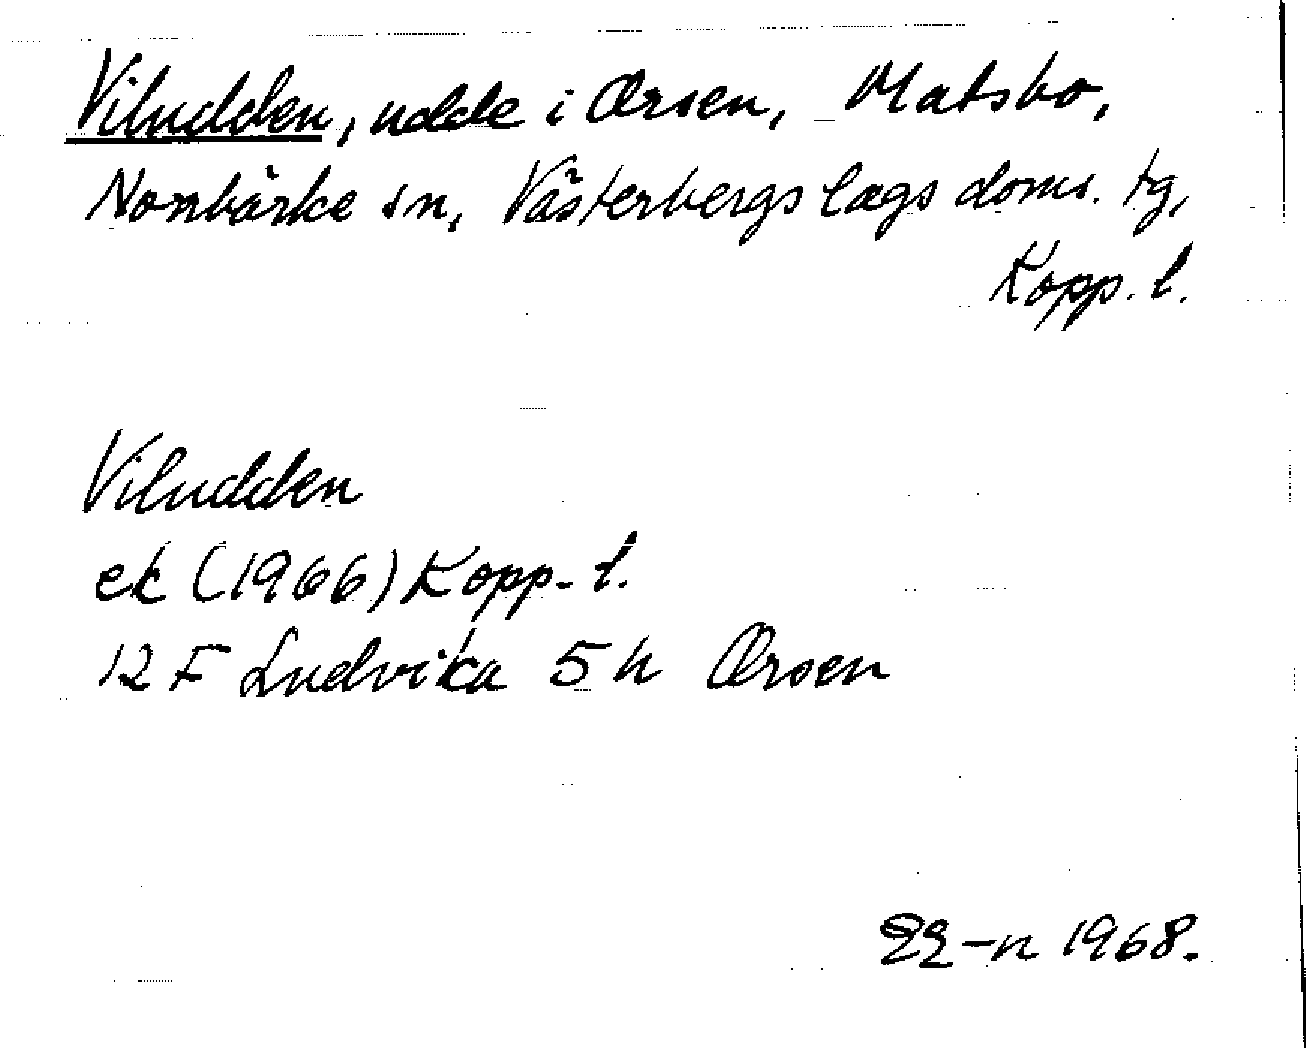 Viludden, udde i Orsen, Matsbo,
Norrbärke sn, Västerbergslags doms. tg,
Kopp. l.
Viludden
ek (1966) Kopp. l.
12 F Ludvika 5 h Orsen
1968.